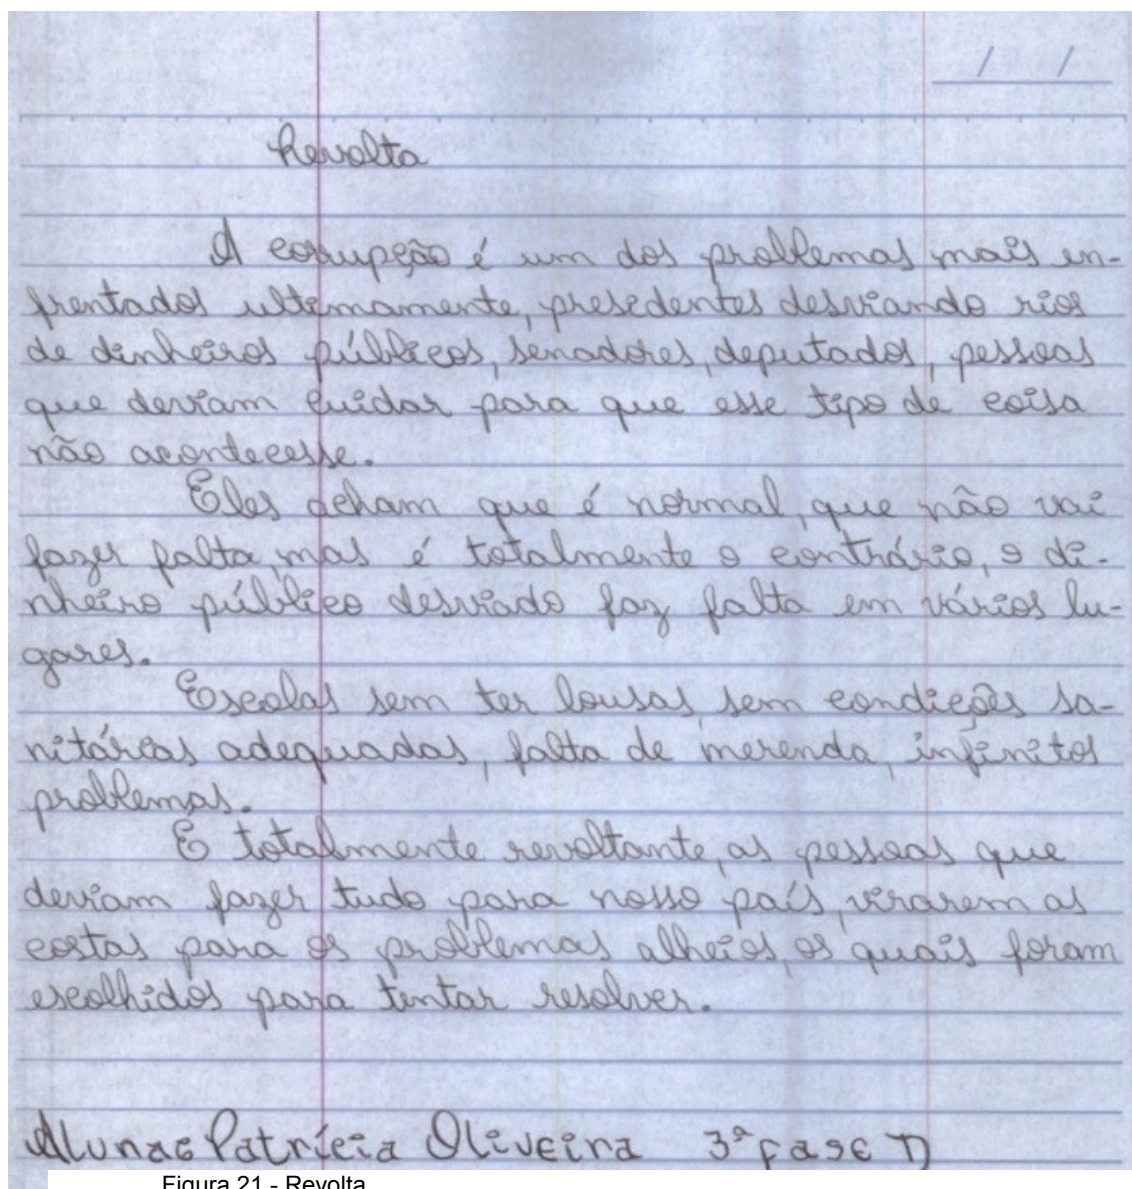 / /
Revolta
A corrupção é um dos problemas mais en-
frentados ultimamente, presidentes desviando rios
de dinheiros públicos, senadores, deputados, pessoas
que deviam cuidar para que esse tipo de coisa
não acontecesse.
Eles acham que é normal, que não vai
fazer falta, mas é totalmente o contrário, o di-
nheiro público desviado faz falta em vários lu-
gares.
Escolas sem ter lousas, sem condições sa-
nitárias adequadas, falta de merenda, infinitos
problemas.
É totalmente revoltante, as pessoas que
deviam fazer tudo para nosso país, virarem as
costas para os problemas alheios, os quais foram
escolhidos para tentar resolver.
Aluna: Patrícia Oliveira 3ª fase D
Figura 21 - Revolta